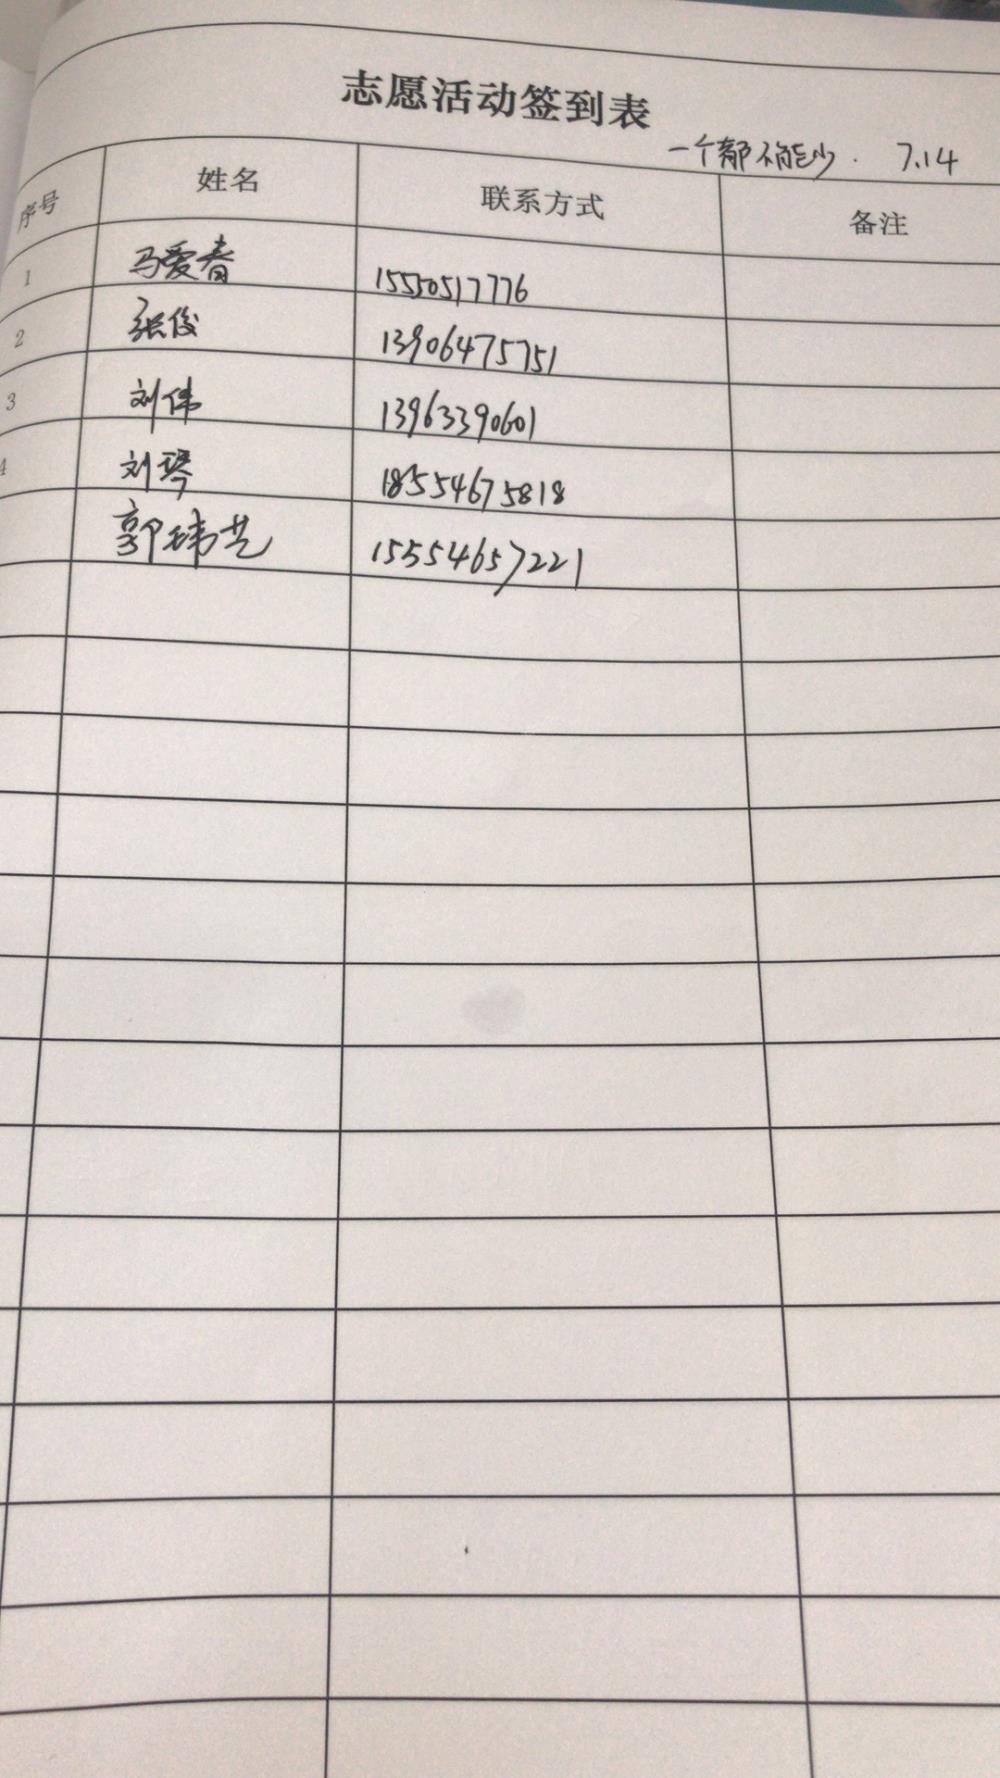 志愿活动签到表
一个都不能少. 7.14
序号 姓名 联系方式 备注
1 马爱春 15550517776
2 张俊 13906475751
3 刘伟 13963390601
4 刘琴 18554675818
郭玮艺 15554657221